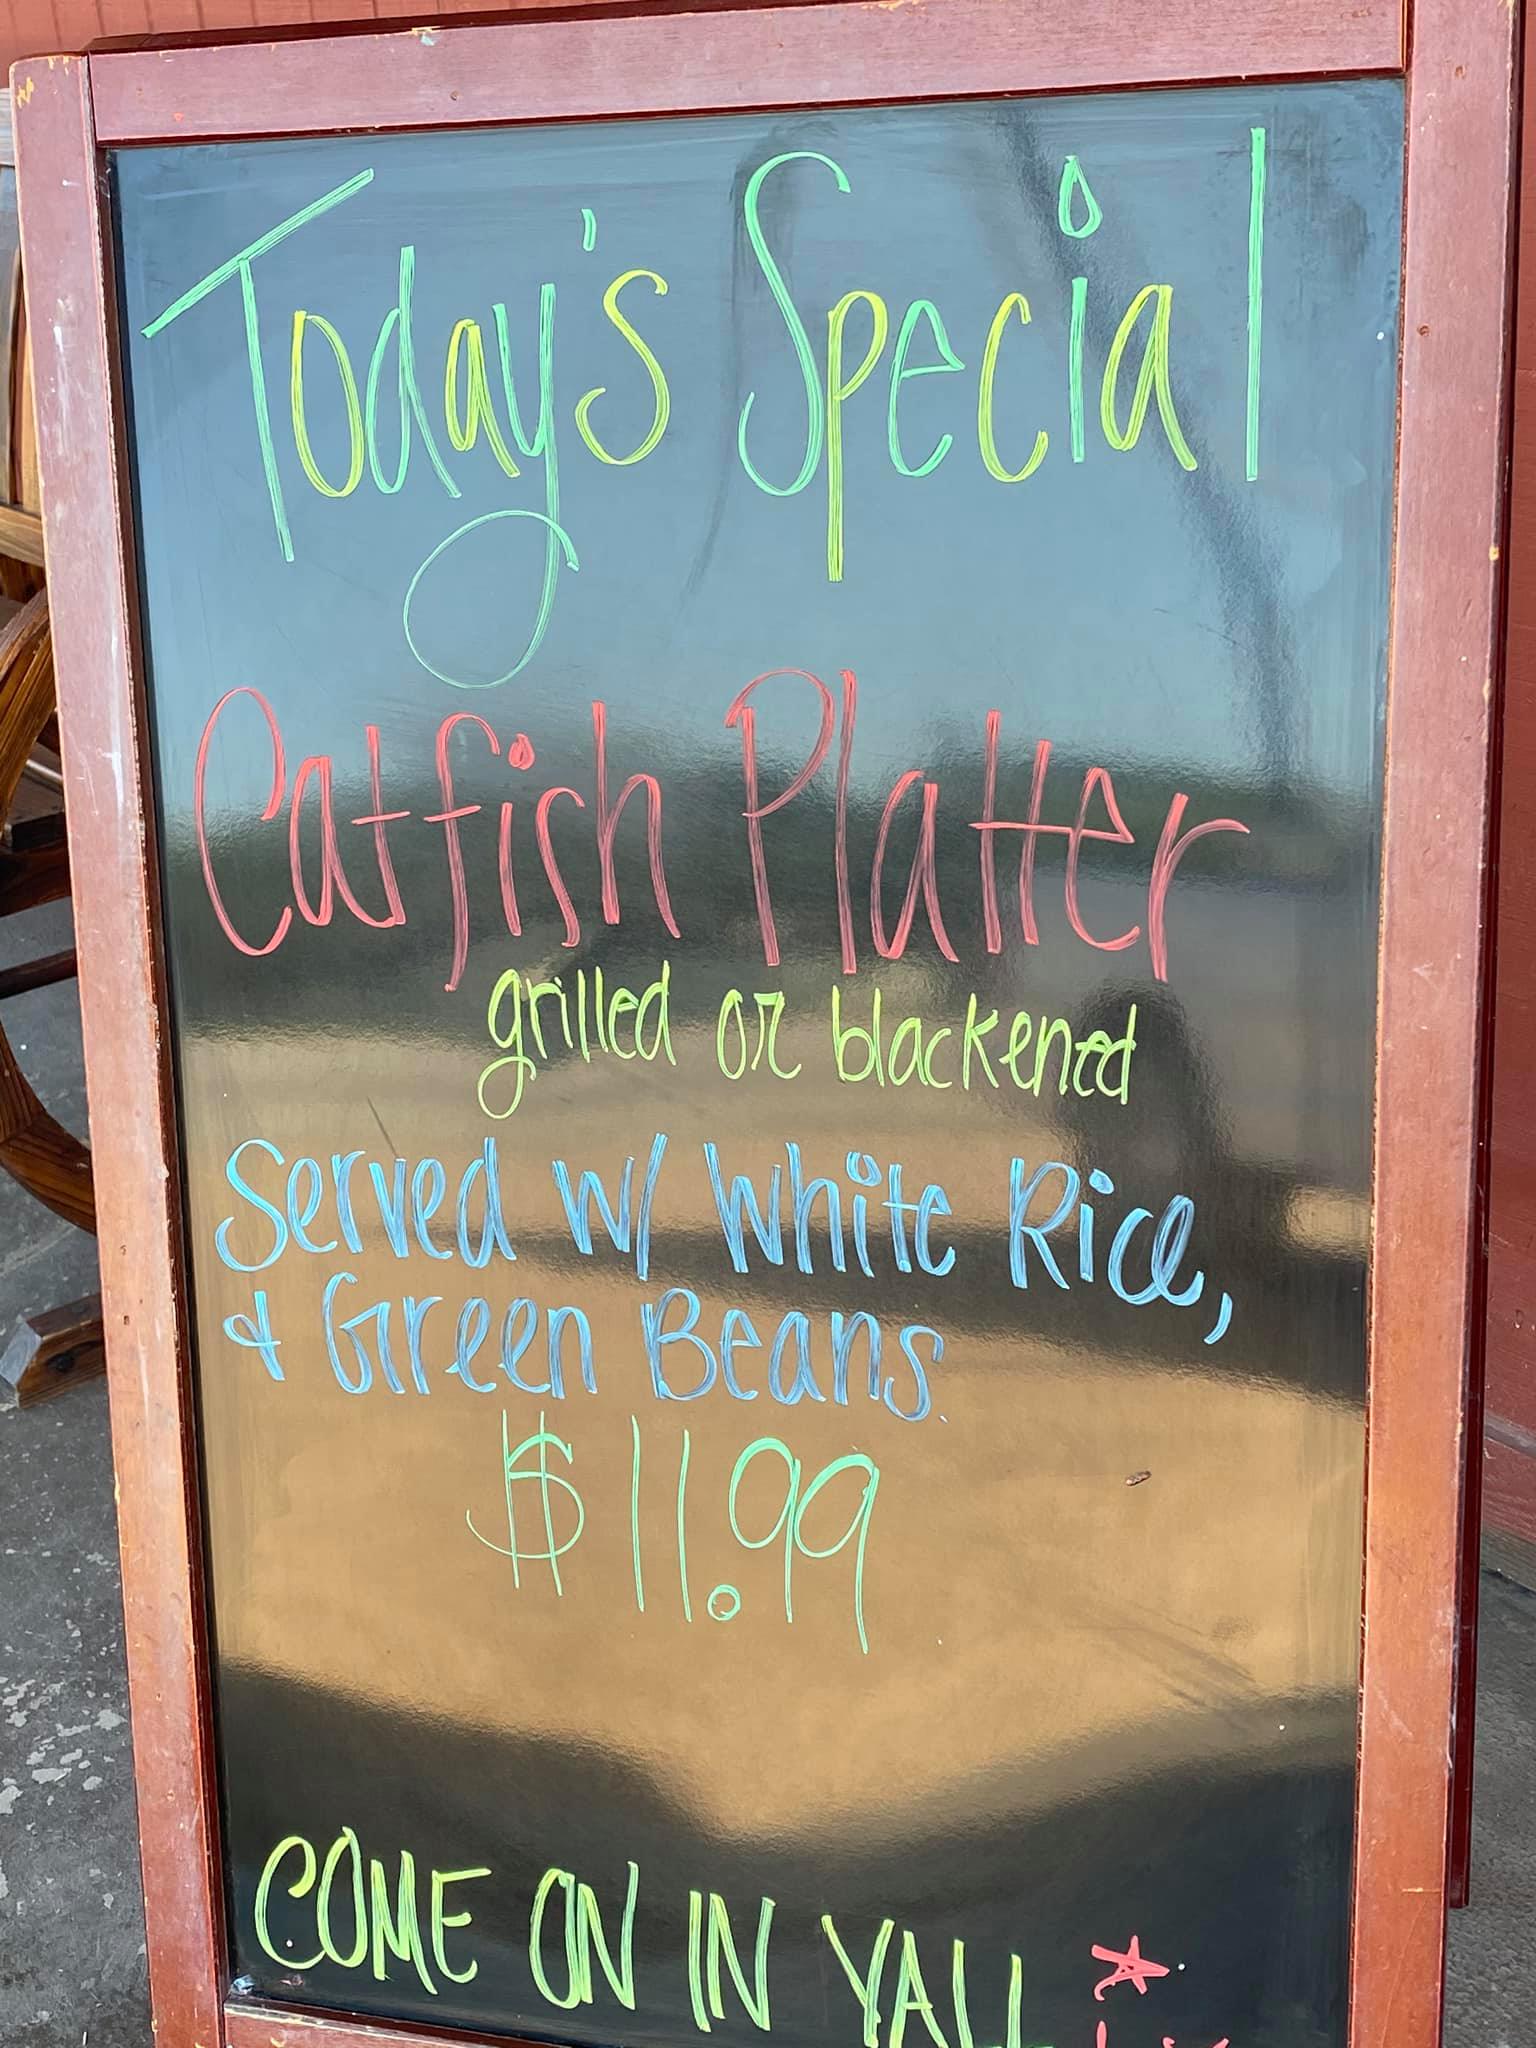 Today's Special
Catfish Platter
grilled or blackened
Served w/ White Rice,
& Green Beans.
$11.99
COME ON IN YALL